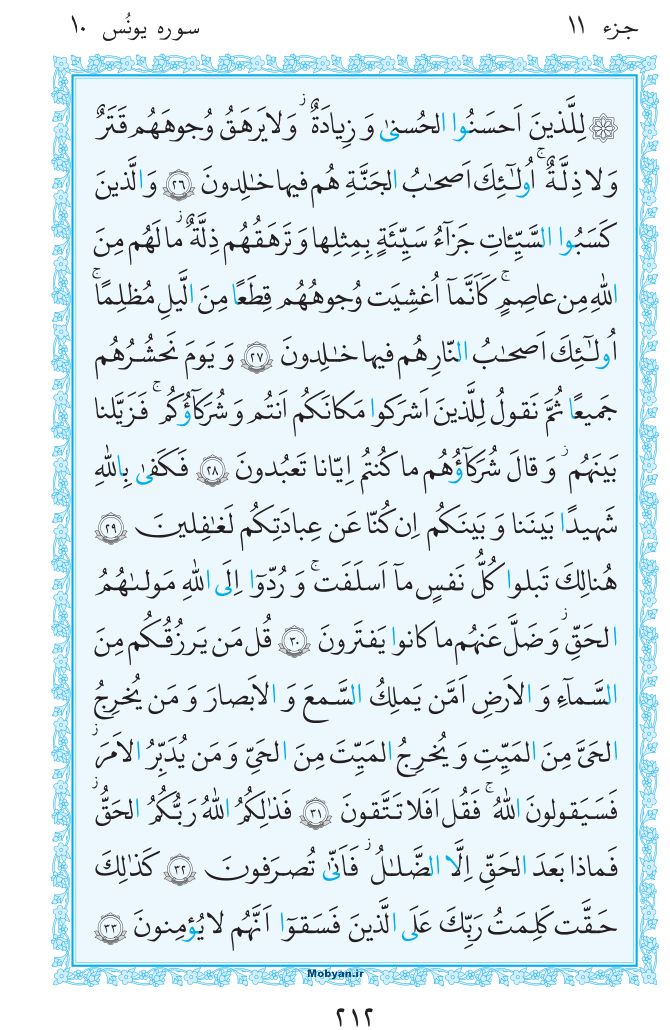 جزء ۱۱
سوره یونُس ۱۰
لِلَّذينَ اَحسَنُوا الحُسنىٰ وَ زِيادَةٌ ۖ وَلا يَرهَقُ وُجوهَهُم قَتَرٌ
وَلا ذِلَّةٌ ۚ اُولـٰٓئِكَ اَصحـٰبُ الجَنَّةِ هُم فيها خـٰلِدونَ ﴿۲۶﴾ وَالَّذينَ
كَسَبُوا السَّيِّـٔاتِ جَزآءُ سَيِّئَةٍ بِمِثلِها وَ تَرهَقُهُم ذِلَّةٌ ۖ ما لَهُم مِنَ
اللهِ مِن عاصِمٍ ۖ كَاَنَّمآ اُغشِيَت وُجوهُهُم قِطَعًا مِنَ الَّيلِ مُظلِمًا ۚ
اُولـٰٓئِكَ اَصحـٰبُ النّارِ هُم فيها خـٰلِدونَ ﴿۲۷﴾ وَ يَومَ نَحشُرُهُم
جَميعًا ثُمَّ نَقولُ لِلَّذينَ اَشرَكوا مَكانَكُم اَنتُم وَ شُرَكآؤُكُم ۚ فَزَيَّلنا
بَينَهُم ۖ وَ قالَ شُرَكآؤُهُم ما كُنتُم اِيّانا تَعبُدونَ ﴿۲۸﴾ فَكَفىٰ بِاللهِ
شَهيدًا بَينَنا وَ بَينَكُم اِن كُنّا عَن عِبادَتِكُم لَغـٰفِلينَ ﴿۲۹﴾
هُنالِكَ تَبلوا كُلُّ نَفسٍ مآ اَسلَفَت ۚ وَ رُدّوٓا اِلَى اللهِ مَولىٰهُمُ
الحَقِّ ۖ وَ ضَلَّ عَنهُم ما كانوا يَفتَرونَ ﴿۳۰﴾ قُل مَن يَرزُقُكُم مِنَ
السَّمآءِ وَ الاَرضِ اَمَّن يَملِكُ السَّمعَ وَ الاَبصارَ وَ مَن يُخرِجُ
الحَىَّ مِنَ المَيِّتِ وَ يُخرِجُ المَيِّتَ مِنَ الحَىِّ وَ مَن يُدَبِّرُ الاَمرَ ۚ
فَسَيَقولونَ اللهُ ۚ فَقُل اَفَلا تَتَّقونَ ﴿۳۱﴾ فَذٰلِكُمُ اللهُ رَبُّكُمُ الحَقُّ ۖ
فَماذا بَعدَ الحَقِّ اِلَّا الضَّلـٰلُ ۖ فَاَنّىٰ تُصرَفونَ ﴿۳۲﴾ كَذٰلِكَ
حَقَّت كَلِمَتُ رَبِّكَ عَلَى الَّذينَ فَسَقوٓا اَنَّهُم لا يُؤمِنونَ ﴿۳۳﴾
Mobyan.ir
۲۱۲